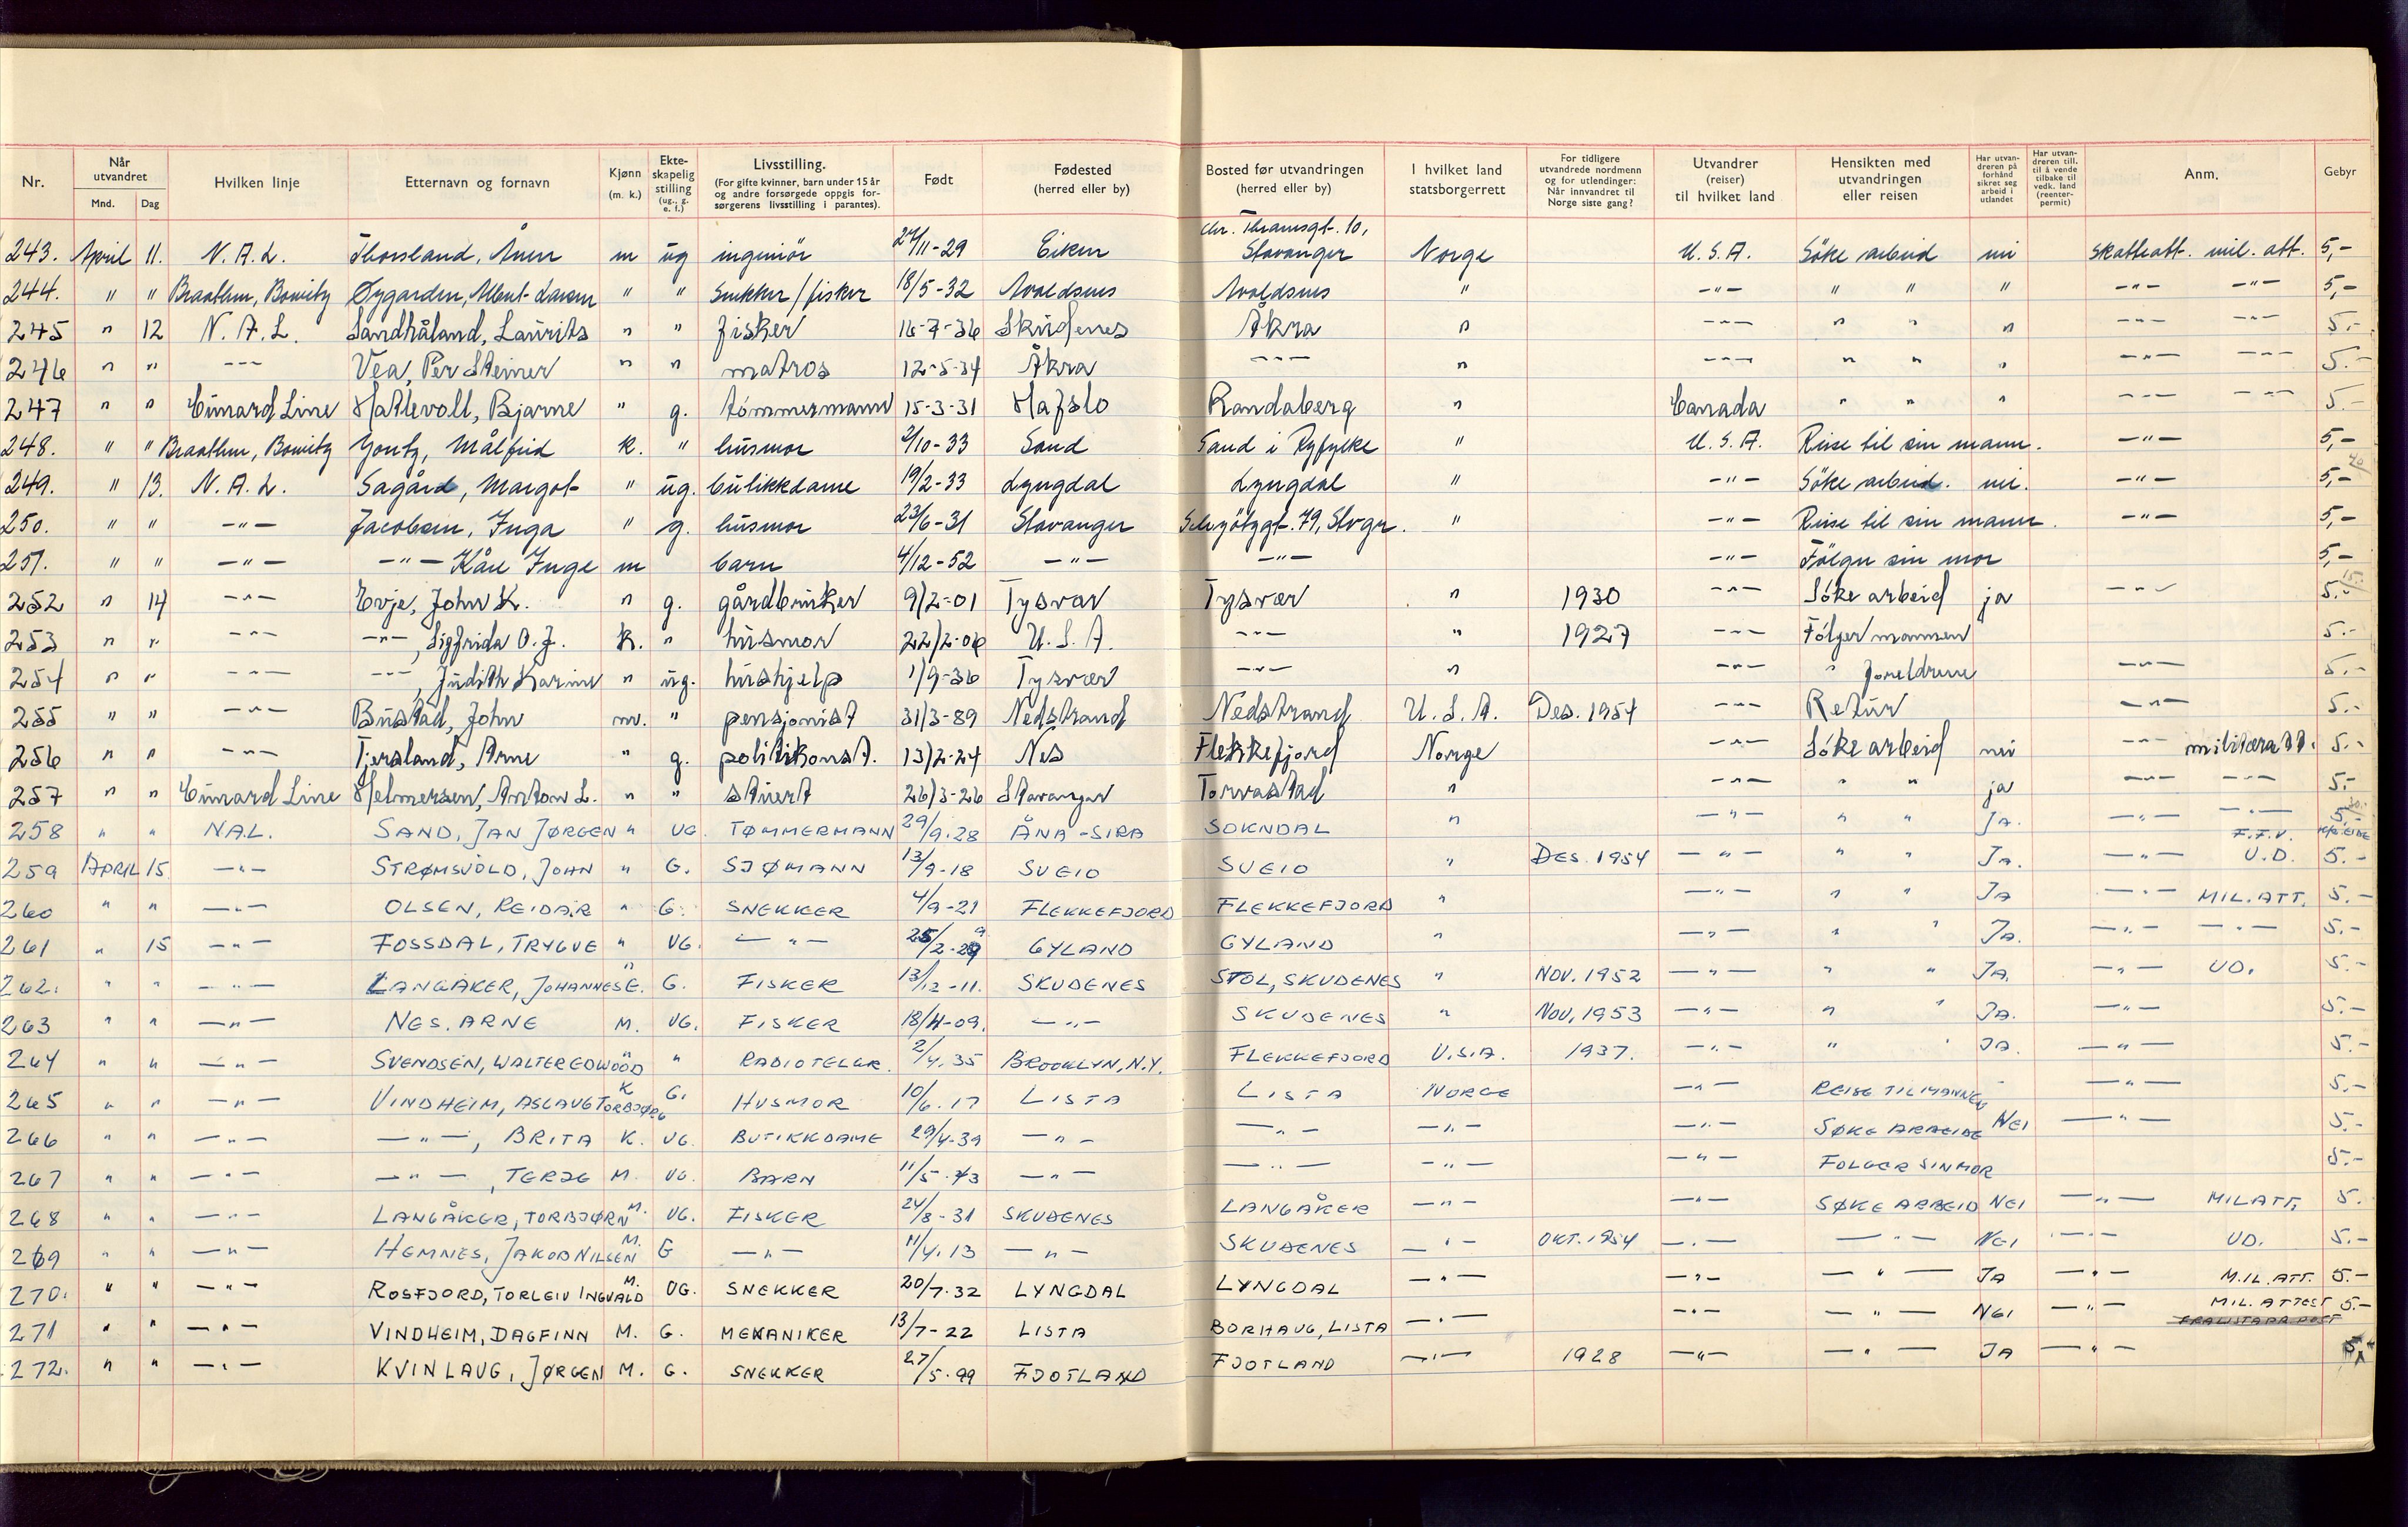 Nr. Når utvandret Mnd. Dag Hvilken linje Etternavn og fornavn Kjønn (m. k.) Ekte-skapelig stilling (ug., g. e. f.) Livsstilling. (For gifte kvinner, barn under 15 år og andre forsørgede oppgis for-sørgerens livsstilling i parantes). Født Fødested (herred eller by) Bosted før utvandringen (herred eller by) I hvilket land statsborgerrett For tidligere utvandrede nordmenn og for utlendinger: Når innvandret til Norge siste gang? Utvandrer (reiser) til hvilket land Hensikten med utvandringen eller reisen Har utvan-dreren på forhånd sikret seg arbeid i utlandet Har utvan-dreren till. til å vende tilbake til vedk. land (reenter-permit) Anm. Gebyr
243. April 11. N. A. L. Thorsland, Ånen m ug ingeniør 24/11-29 Eiken Chr. Thramsgt. 10, Stavanger Norge U. S. A. Söke arbeid nei Skatteatt. mil. att. 5,-
244. " " Braathen, Bowitz Øygarden, Albert Larsen " " Snekker / fisker 18/5-32 Avaldsnes Avaldsnes " -"- " " " -"- -"- 5,-
245 " 12 N. A. L. Sandhåland, Laurits " " fisker 16-7-36 Skudenes Åkra " -"- " " " -"- -"- 5.-
246 " " -"- Vea, Per Steiner " " matros 12-5-34 Åkra -"- " -"- " " " -"- -"- 5.-
247 " " Cunard Line Hatlevoll, Bjarne " g. tømmermann 15-3-31 Hafslo Randaberg " Canada " " " -"- -"- 5.-
248. " " Braathen, Bowitz Yontz, Målfrid k. " husmor 2/10-33 Sand Sand i Ryfylke " U. S. A. Reise til sin mann. -"- 5,-
249. " 13. N. A. L. Sagård, Margot " ug. butikkdame 19/2-33 Lyngdal Lyngdal " -"- Söke arbeid. nei. -"- 5,-
250. " " -"- Jacobsen, Inga " g. husmor 23/6-31 Stavanger 79, Stvgr. " -"- Reise til sin mann. -"- 5,-
251. " " -"- -"- Kåre Inge m barn 4/12-52 -"- -"- -"- Følger sin mor 5,-
252 " 14 -"- Evje, John K. " g. gårdbruker 9/2-01 Tysvær Tysvær " 1930 -"- Søke arbeid ja -"- 5.-
253 " " -"- -"-, Sigfrida O. J. k. " husmor 22/2-06 U. S. A. -"- " 1927 -"- Følger mannen 5.-
254 " " -"- -"-, Judith Karine " ug. hushjelp 1/9-36 Tysvær -"- " -"- " foreldrene -"- 5.-
255 " " -"- Bustad, John m. " pensjonist 31/3-89 Nedstrand Nedstrand U. S. A. Des. 1954 -"- Retur -"- 5.-
256 " " -"- Tjersland, Arne " g. politikonst. 13/2-24 Nes Flekkefjord Norge -"- Søke arbeid nei -"- militæratt. 5.-
257 " " Cunard Line Helmersen, Anton L. " " stuert 26/3-26 Stavanger Torvastad " -"- " " ja -"- -"- 5.-
258 " " NAL. SAND, JAN JØRGEN " UG. TØMMERMANN 29/9.28 ÅNA-SIRA SOKNDAL " -"- " " JA. -"- -"- F.F.V. 5.-
259 APRIL 15 -"- STRØMSVOLD, JOHN " G. SJØMANN 13/9-18 SVEIO SVEIO " DES. 1954 -"- " " JA. -"- U.D. 5.-
260 " " -"- OLSEN, REIDAR " G. SNEKKER 4/9-21 FLEKKEFJORD FLEKKEFJORD " -"- " " JA -"- MIL. ATT. 5.-
261 " 15 -"- FOSSDAL, TRYGVE " UG. -"- 25/2-29 GYLAND GYLAND " -"- " " JA. -"- -"- 5.-
262. " " -"- LANGÅKER, JOHANNES E. " G. FISKER 13/12-11. SKUDENES STOL, SKUDENES " NOV. 1952 -"- " " JA. -"- UD. 5.-
263 " " -"- NES. ARNE M. UG. FISKER 18/4-09. -"- SKUDENES " NOV, 1953 -"- " " JA. -"- 5.-
264 " " -"- SVENDSEN, WALTER EDWOOD " " RADIOTELGR. 2/4.35 BROOKLYN, N.Y. FLEKKEFJORD U.S.A. 1937. -"- " " JA. -"- 5.-
265 " " -"- VINDHEIM, ASLAUG TORBJØRG K G. HUSMOR 10/6.17 LISTA LISTA NORGE -"- REISE TIL MANNEN -"- 5.-
266 " " -"- -"-, BRITA K. UG. BUTIKKDAME 29/4-39 -"- -"- -"- -"- SØKE ARBEIDE NEI -"- 5.-
267 " " -"- -"-, TERJE M. UG. BARN 11/5.43 -"- -"- -"- -"- FOLGER SIN MOR 5.-
268 " " -"- LANGÅKER, TORBJØRN M. UG. FISKER 24/8-31 SKUDENES LANGÅKER -"- -"- SØKE ARBEID NEI -"- MIL ATT. 5.
269 " " -"- HEMNES, JAKOB NILSEN M. G -"- 11/4.13 -"- SKUDENES -"- OKT. 1954 -"- -"- NEI -"- UD. 5.-
270. " " -"- ROSFJORD, TORLEIV INGVALD M. UG. SNEKKER 20/7.32 LYNGDAL LYNGDAL -"- -"- -"- JA -"- MIL. ATT. 5.-
271 " " -"- VINDHEIM, DAGFINN M. G. MEKANIKER 13/7-22 LISTA BORHAUG, LISTA -"- -"- -"- NEI -"- MIL. ATTEST 5.-
272. " " -"- KVINLAUG, JØRGEN M. G. SNEKKER 27/5.99 FJOTLAND FJOTLAND -"- 1928 -"- -"- JA -"- 5,-